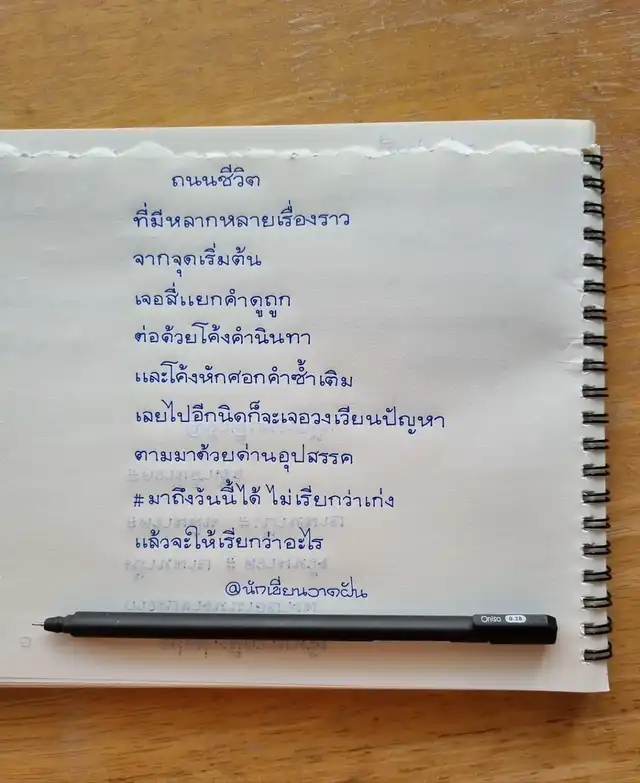 ถนนชีวิต
ที่มีหลากหลายเรื่องราว
จากจุดเริ่มต้น
เจอสี่แยกคำดูถูก
ต่อด้วยโค้งคำนินทา
และโค้งหักศอกคำซ้ำเติม
เลยไปอีกนิดก็จะเจอวงเวียนปัญหา
ตามมาด้วยด่านอุปสรรค
#มาถึงวันนี้ได้ ไม่เรียกว่าเก่ง
แล้วจะให้เรียกว่าอะไร
@นักเขียนวาดฝัน
Oniso 0.28